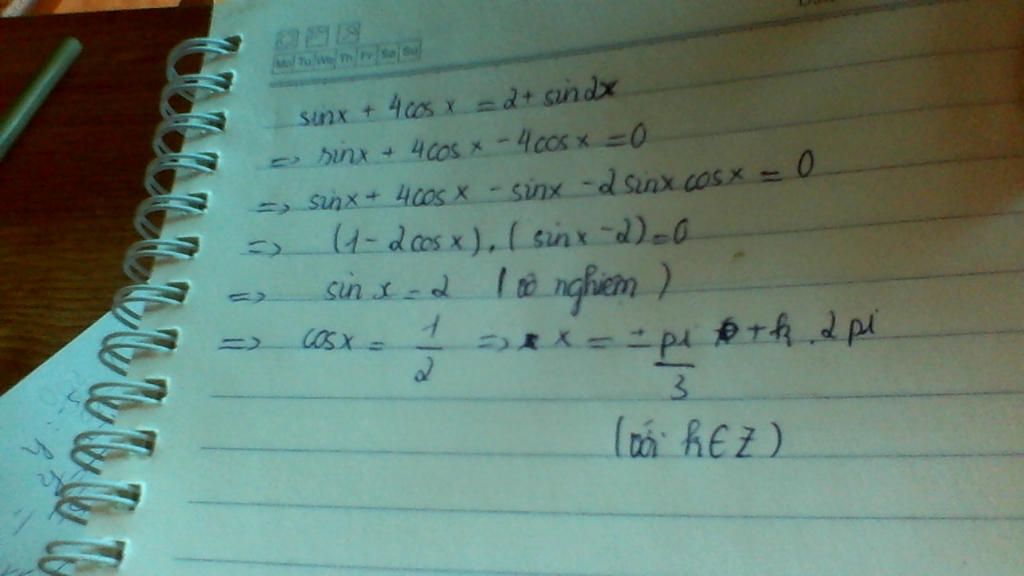 Mo Tu We Th Fr Sa Su
sinx + 4cos x = 2 + sin2x
=> sinx + 4cosx - 4cosx = 0
=> sinx + 4cosx - sinx - 2 sinx cosx = 0
=> (1 - 2cosx). ( sinx - 2) = 0
=> sin x = 2 ( vô nghiệm )
=> cosx = 1/2 => x = ± pi/3 + k . 2 pi
(với k ∈ Z )